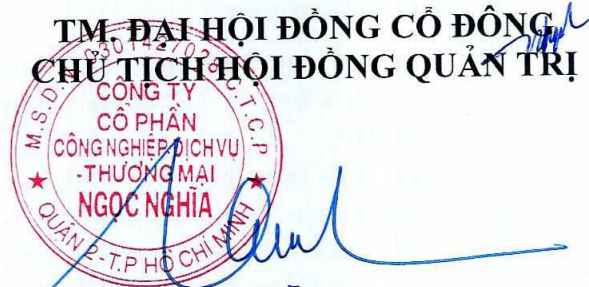 TM. ĐẠI HỘI ĐỒNG CỔ ĐÔNG
CHỦ TỊCH HỘI ĐỒNG QUẢN TRỊ
M.S.D.N: 0301427028-C.T.C.P
CÔNG TY
CỔ PHẦN
CÔNG NGHIỆP-DỊCH VỤ
-THƯƠNG MẠI
NGỌC NGHĨA
QUẬN 2-T.P HỒ CHÍ MINH